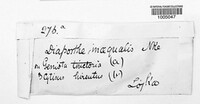 1000047
276.a
Diaporthe inaequalis Nke
Genista tinctoria (a)
Cytisus hirsutus (b.)
Lófka